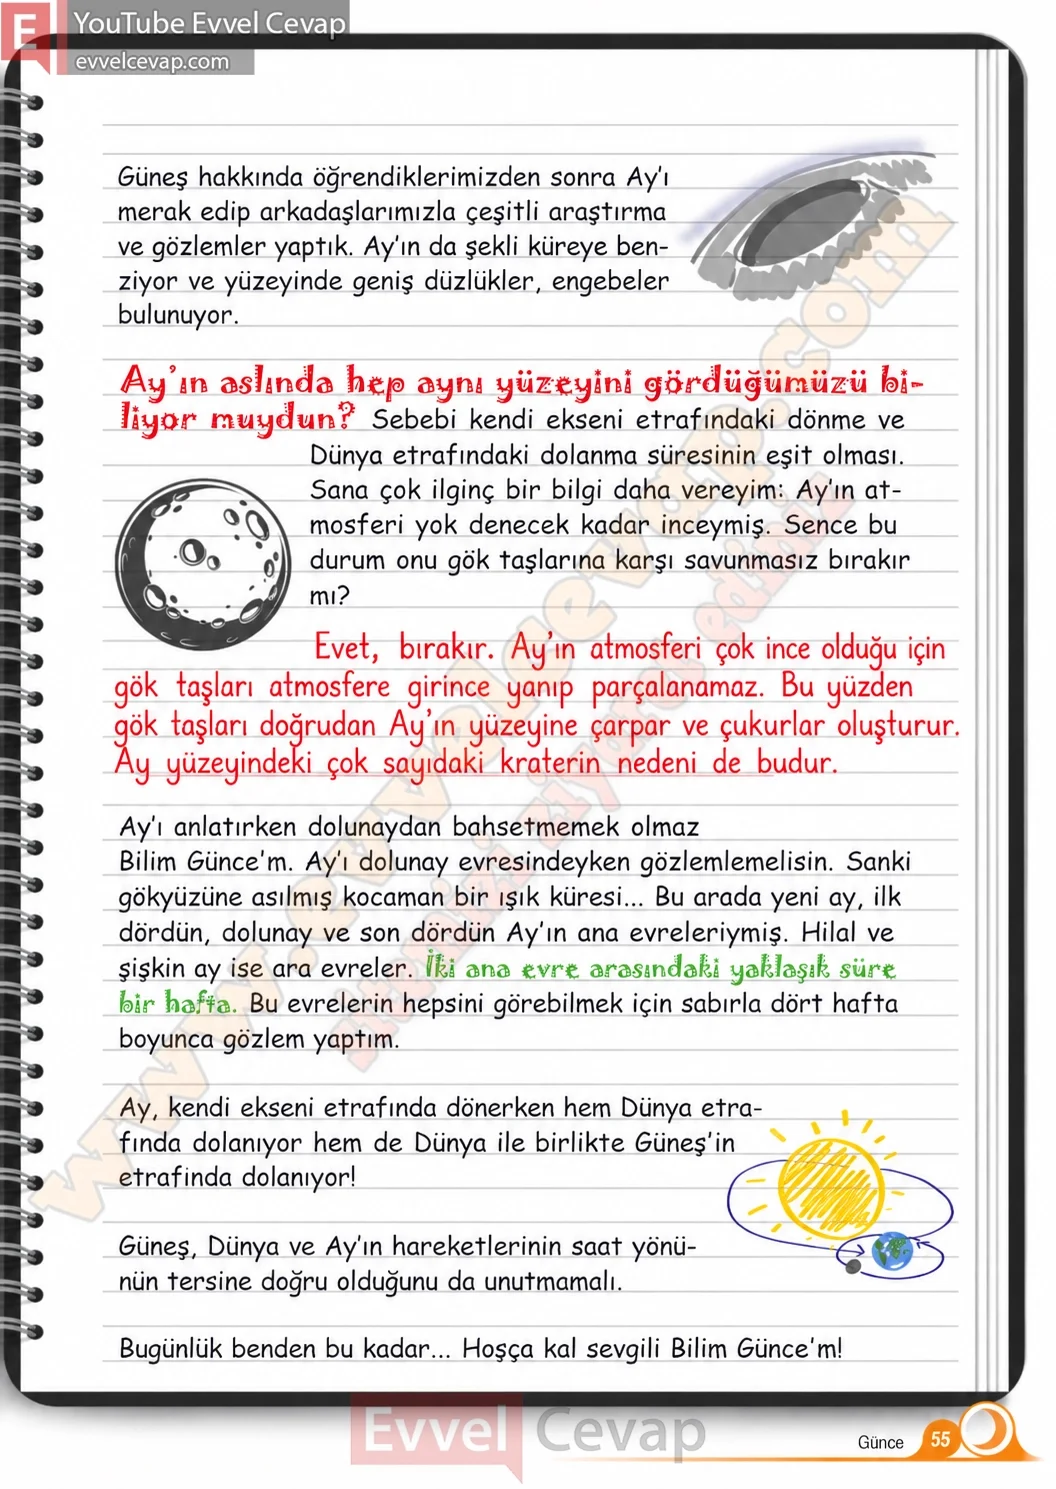 YouTube Evvel Cevap
evvelcevap.com
Güneş hakkında öğrendiklerimizden sonra Ay'ı
merak edip arkadaşlarımızla çeşitli araştırma
ve gözlemler yaptık. Ay'ın da şekli küreye ben-
ziyor ve yüzeyinde geniş düzlükler, engebeler
bulunuyor.
Ay'ın aslında hep aynı yüzeyini gördüğümüzü bi-
liyor muydun? Sebebi kendi ekseni etrafındaki dönme ve
Dünya etrafındaki dolanma süresinin eşit olması.
Sana çok ilginç bir bilgi daha vereyim: Ay'ın at-
mosferi yok denecek kadar inceymiş. Sence bu
durum onu gök taşlarına karşı savunmasız bırakır
mı?
Evet, bırakır. Ay'ın atmosferi çok ince olduğu için
gök taşları atmosfere girince yanıp parçalanamaz. Bu yüzden
gök taşları doğrudan Ay'ın yüzeyine çarpar ve çukurlar oluşturur.
Ay yüzeyindeki çok sayıdaki kraterin nedeni de budur.
Ay'ı anlatırken dolunaydan bahsetmemek olmaz
Bilim Günce'm. Ay'ı dolunay evresindeyken gözlemlemelisin. Sanki
gökyüzüne asılmış kocaman bir ışık küresi... Bu arada yeni ay, ilk
dördün, dolunay ve son dördün Ay'ın ana evreleriymiş. Hilal ve
şişkin ay ise ara evreler. İki ana evre arasındaki yaklaşık süre
bir hafta. Bu evrelerin hepsini görebilmek için sabırla dört hafta
boyunca gözlem yaptım.
Ay, kendi ekseni etrafında dönerken hem Dünya etra-
fında dolanıyor hem de Dünya ile birlikte Güneş'in
etrafında dolanıyor!
Güneş, Dünya ve Ay'ın hareketlerinin saat yönü-
nün tersine doğru olduğunu da unutmamalı.
Bugünlük benden bu kadar... Hoşça kal sevgili Bilim Günce'm!
www.evvelcevap.com
sitemizi ziyaret ediniz
Evvel Cevap
Günce 55